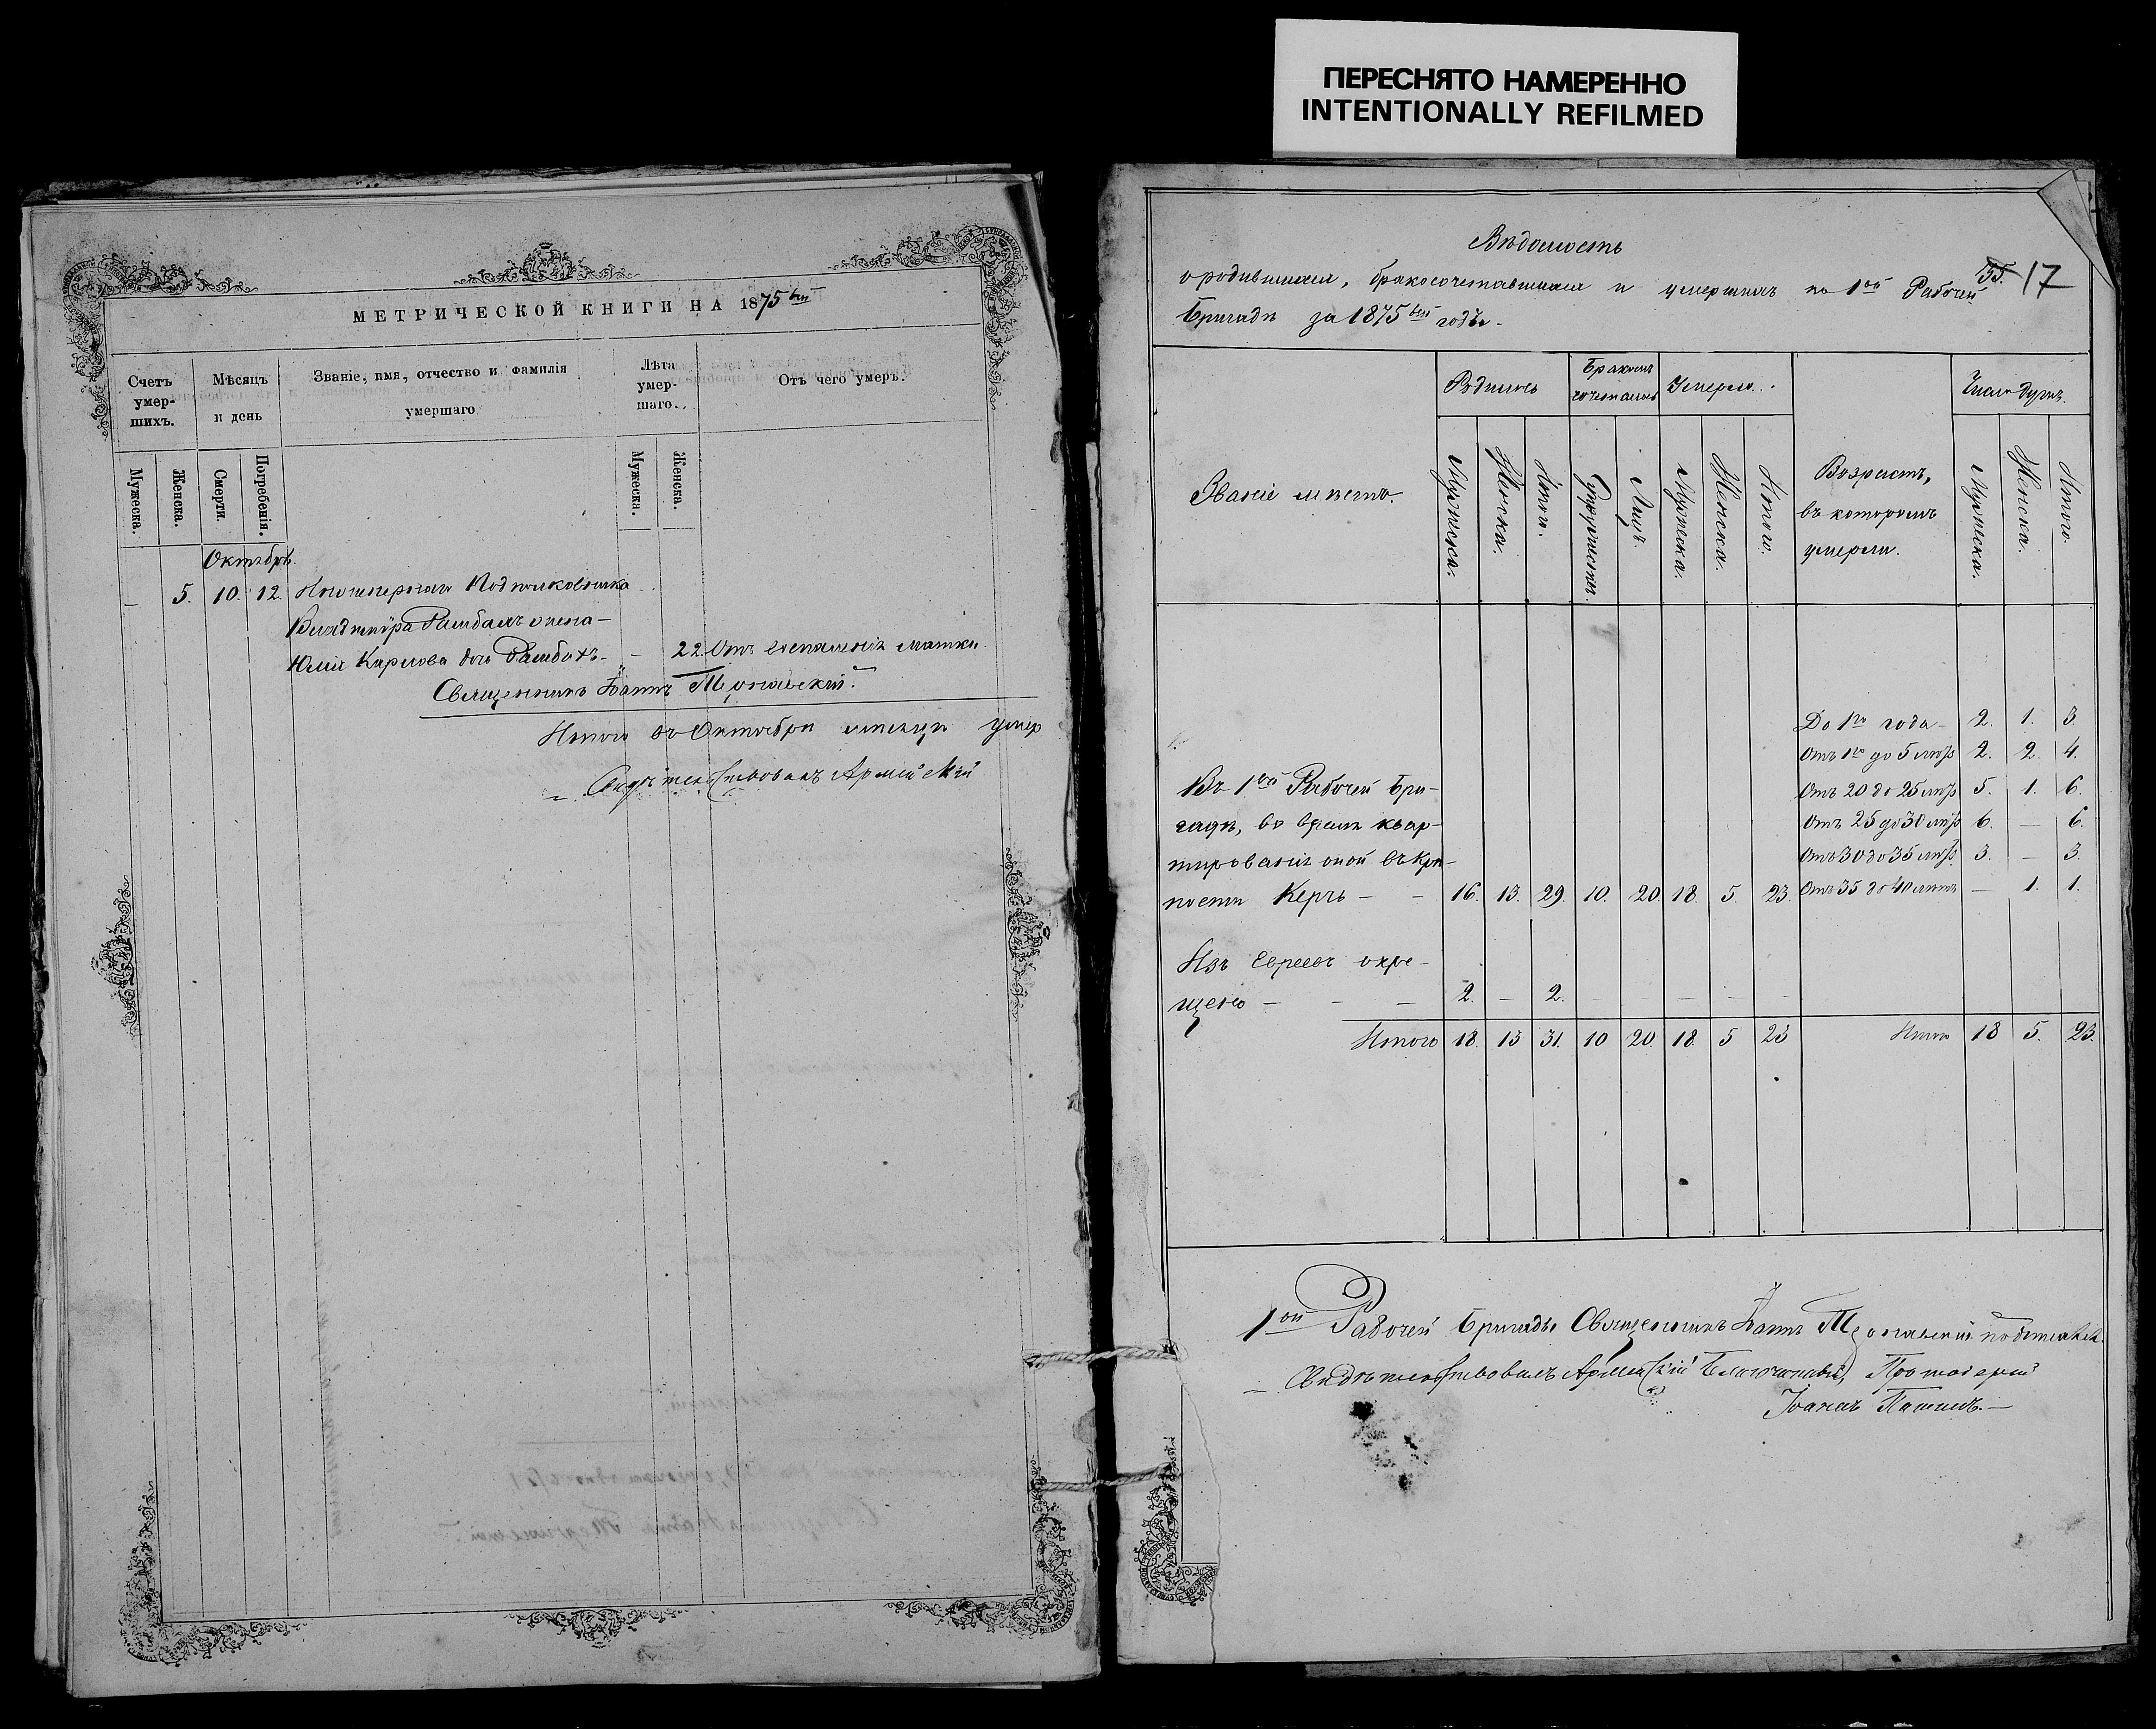 ПЕРЕСНЯТО НАМЕРЕННО
INTENTIONALLY REFILMED
МЕТРИЧЕСКОЙ КНИГИ НА 1875
Счетъ умер-шихъ.
Мѣсяцъ и день
Званіе, имя, отчество и фамилія умершаго
Лѣта умер-шаго.
Отъ чего умеръ.
Мужеска.
Женска.
Смерти.
Погребенія.
Мужеска.
Женска.
Октябрь.
5. 10. 12. Инженернаго Подполковника
жена –
Юлія Карлова – 22. Отъ воспаленія матки.
Священникъ Іоаннъ
Итого въ Октябрѣ мѣсяцѣ умер
Свидѣтельствовалъ Армейскій
Вѣдомость
17
о родившихся, бракосочетавшихся и умершихъ по 1ой Рабочей
Бригадѣ за 1875 годъ.
Званіе мѣстъ.
Родилось
Бракомъ сочеталось
Умерло.
Возрастъ, въ которомъ умерли.
Число душъ.
Мужеска.
Женска.
Итого.
Супружествъ.
Лицъ.
Мужеска.
Женска.
Итого.
Мужеска.
Женска.
Итого.
До 1го года – 2. 1. 3.
Отъ 1го до 5 лѣтъ 2. 2. 4.
Въ 1ой Рабочей Бри-
Отъ 20 до 25 лѣтъ 5. 1. 6.
гадѣ, во время квар-
Отъ 25 до 30 лѣтъ 6. – 6.
тированія оной въ Крѣ-
Отъ 30 до 35 лѣтъ 3. – 3.
пости Керчь – – 16. 13. 29. 10. 20. 18. 5. 23. Отъ 35 до 40 лѣтъ – 1. 1.
Изъ Евреевъ окре-
щено – – – 2. – 2. – – – – –
Итого 18. 13 31. 10 20. 18. 5 23 Итого 18 5. 23.
1ой Рабочей Бригады Священникъ Іоаннъ
Свидѣтельствовалъ Армейскій Благочинный, Протоіерей
Іоаннъ